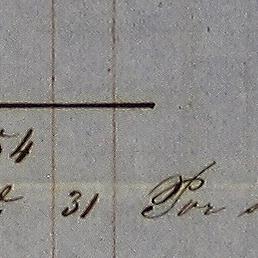 54
31 Por